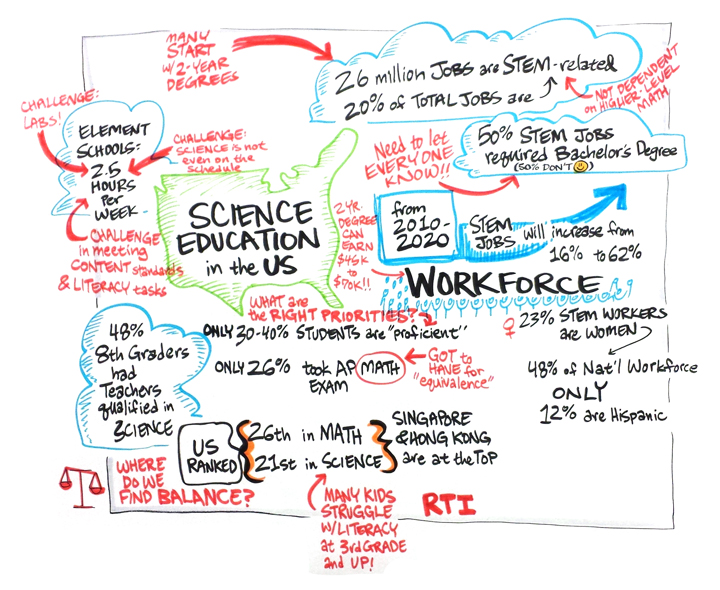 MANY
START
W/2-YEAR
DEGREES
26 million JOBS are STEM-related
20% of TOTAL JOBS are
NOT DEPENDENT
on HIGHER-LEVEL
MATH
CHALLENGE:
LABS!
ELEMENT
SCHOOLS:
2.5
HOURS
Per
WEEK
CHALLENGE:
SCIENCE is not
even on the
schedule
CHALLENGE
in meeting
CONTENT standards
& LITERACY tasks
Need to let
EVERYONE
KNOW!!
50% STEM JOBS
required Bachelor's Degree
(50% DON'T 🙂)
SCIENCE
EDUCATION
in the US
2 YR.
DEGREE
CAN
EARN
$45K
to
$70K!!
from
2010-
2020
STEM
JOBS
will increase from
16% to 62%
WORKFORCE
WHAT are
the RIGHT PRIORITIES?
48%
8th Graders
had
Teachers
qualified in
SCIENCE
ONLY 30-40% STUDENTS are "proficient"
ONLY 26% took AP MATH
EXAM
GOT to
HAVE for
"equivalence"
♀ 23% STEM WORKERS
are WOMEN
48% of Nat'l Workforce
ONLY
12% are Hispanic
US
RANKED
26th in MATH
21st in SCIENCE
SINGAPORE
& HONG KONG
are at the TOP
WHERE
DO WE
FIND BALANCE?
MANY KIDS
STRUGGLE
W/LITERACY
at 3rd GRADE
and UP!
RTI